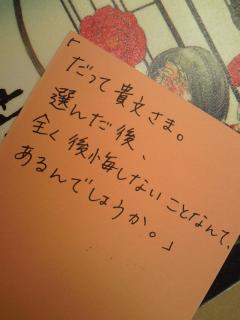 「だって貴文さま。
選んだ後、
全く後悔しないことなんて、
あるんでしょうか。」